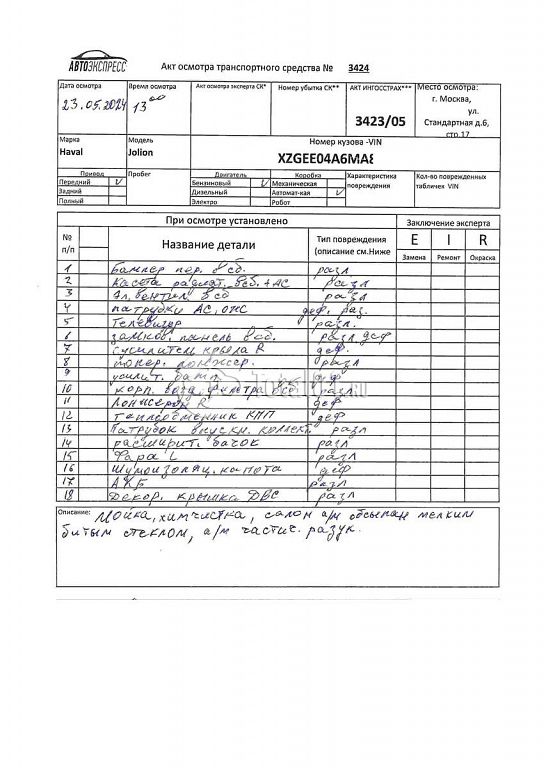 АВТОЭКСПРЕСС
Акт осмотра транспортного средства № 3424
Дата осмотра
23.05.2024
Время осмотра
13 00
Акт осмотра эксперта СК*
Номер убытка СК**
АКТ ИНГОССТРАХ***
3423/05
Место осмотра:
г. Москва,
ул.
Стандартная д.6,
стр.17
Марка
Haval
Модель
Jolion
Номер кузова -VIN
XZGEE04A6MA8
Привод
Передний V
Задний
Полный
Пробег
Двигатель
Бензиновый V
Дизельный
Электро
Коробка
Механическая
Автомат-кая V
Робот
Характеристика
повреждения
Кол-во поврежденных
табличек VIN
При осмотре установлено
Заключение эксперта
№
п/п
Название детали
Тип повреждения
(описание см.Ниже
E I R
Замена Ремонт Окраска
1 Бампер пер. в сб. разл
2 Касета радиат. в сб. + АС разл
3 Эл. вентил. в сб разл
4 патрубки АС, ОЖ деф. раз.
5 Телевизор разл.
6 замков. панель в сб. разл деф
7 усилители крыла R деф.
8 попер. лонжер. разл
9 усилит. деф
10 корп. возд. фильтра в сб деф
11 Лонжерон R деф
12 теплообменник КПП деф
13 Патрубок впускн. коллект. разл
14 расширит. бачок разл
15 Фара L разл
16 Шумоизоляц. капота деф
17 АКБ разл
18 Декор. крышка ДВС разл
Описание: Мойка, химчистка, салон а/м обсыпан мелким
битым стеклом, а/м частич. разук.